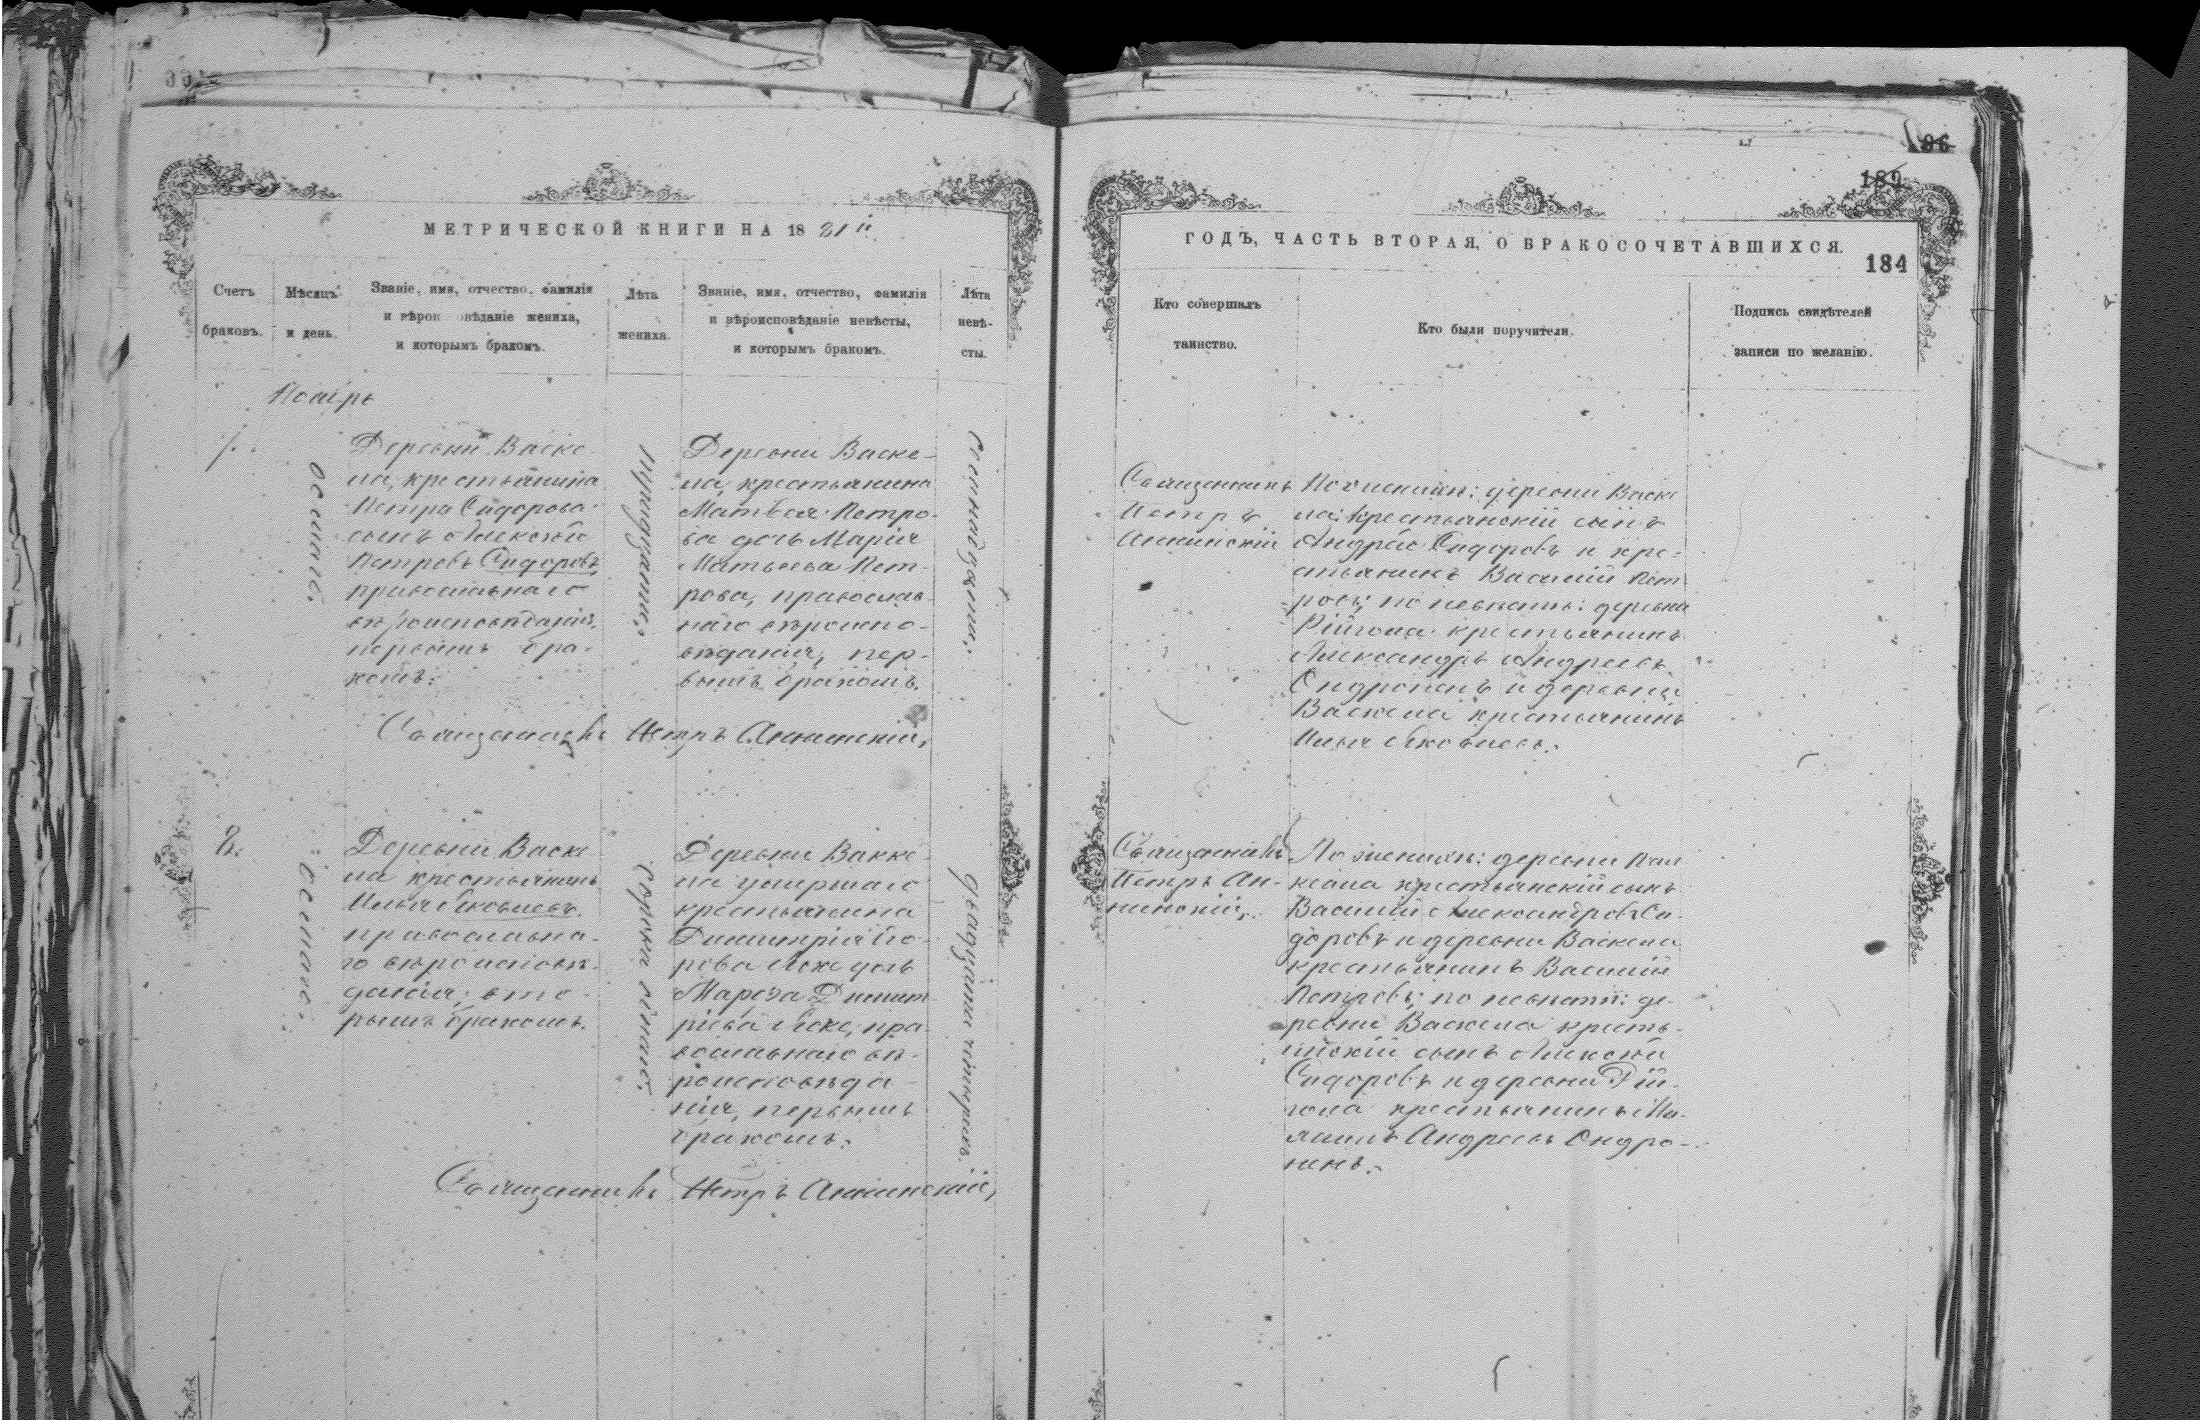 96
182
МЕТРИЧЕСКОЙ КНИГИ НА 18 81 й
Счетъ браковъ.
Мѣсяцъ и день.
Званіе, имя, отчество, фамилія и вѣроисповѣданіе жениха, и которымъ бракомъ.
Лѣта жениха.
Званіе, имя, отчество, фамилія и вѣроисповѣданіе невѣсты, и которымъ бракомъ.
Лѣта невѣсты.
Ноябрь
7.
осмаго.
Деревни Васке-
ла, крестьянина
Петра Сидорова
сынъ Алексѣй
Петровъ Сидоровъ,
православнаго
вѣроисповѣданія,
первымъ бра-
комъ.
тридцать.
Деревни Васке-
ла, крестьянина
Матвея Петро-
ва дочь Марія
Матвеева Пет-
рова, православ-
наго вѣроиспо-
вѣданія, пер-
вымъ бракомъ.
Священникъ Петръ Аннинскій,
8.
осмаго.
Деревни Васке-
ла крестьянинъ
Илья Яковлевъ,
православна-
го вѣроисповѣ-
данія, вто-
рымъ бракомъ.
сорока
Деревни
ла умершаго
крестьянина
Димитрія Его-
рова дочь
Марѳа Димит-
ріева пра-
вославнаго вѣ-
роисповѣда-
нія, первымъ
бракомъ.
двадцати четырехъ.
Священникъ Петръ Аннинскій,
ГОДЪ, ЧАСТЬ ВТОРАЯ, О БРАКОСОЧЕТАВШИХСЯ.
184
Кто совершалъ таинство.
Кто были поручители.
Подпись свидѣтелей записи по желанію.
Священникъ
Петръ
Аннинскій
По женихѣ: деревни Васке-
ла: крестьянскій сынъ
Андрей Сидоровъ и кре-
стьянинъ Василій Пет-
ровъ; по невѣстѣ: деревни
Рійгола крестьянинъ
Александръ Андреевъ
Ондроненъ и деревни
Васкела крестьянинъ
Илья Яковлевъ.
Священникъ
Петръ Ан-
нинскій,
По женихѣ: деревни
крестьянскій сынъ
Василій Александровъ Си-
доровъ и деревни Васкела
крестьянинъ Василій
Петровъ; по невѣстѣ: де-
ревни Васкела кресть-
янскій сынъ Алексѣй
Сидоровъ и деревни Рій-
гола крестьянинъ
Андреевъ Ондро-
ненъ.